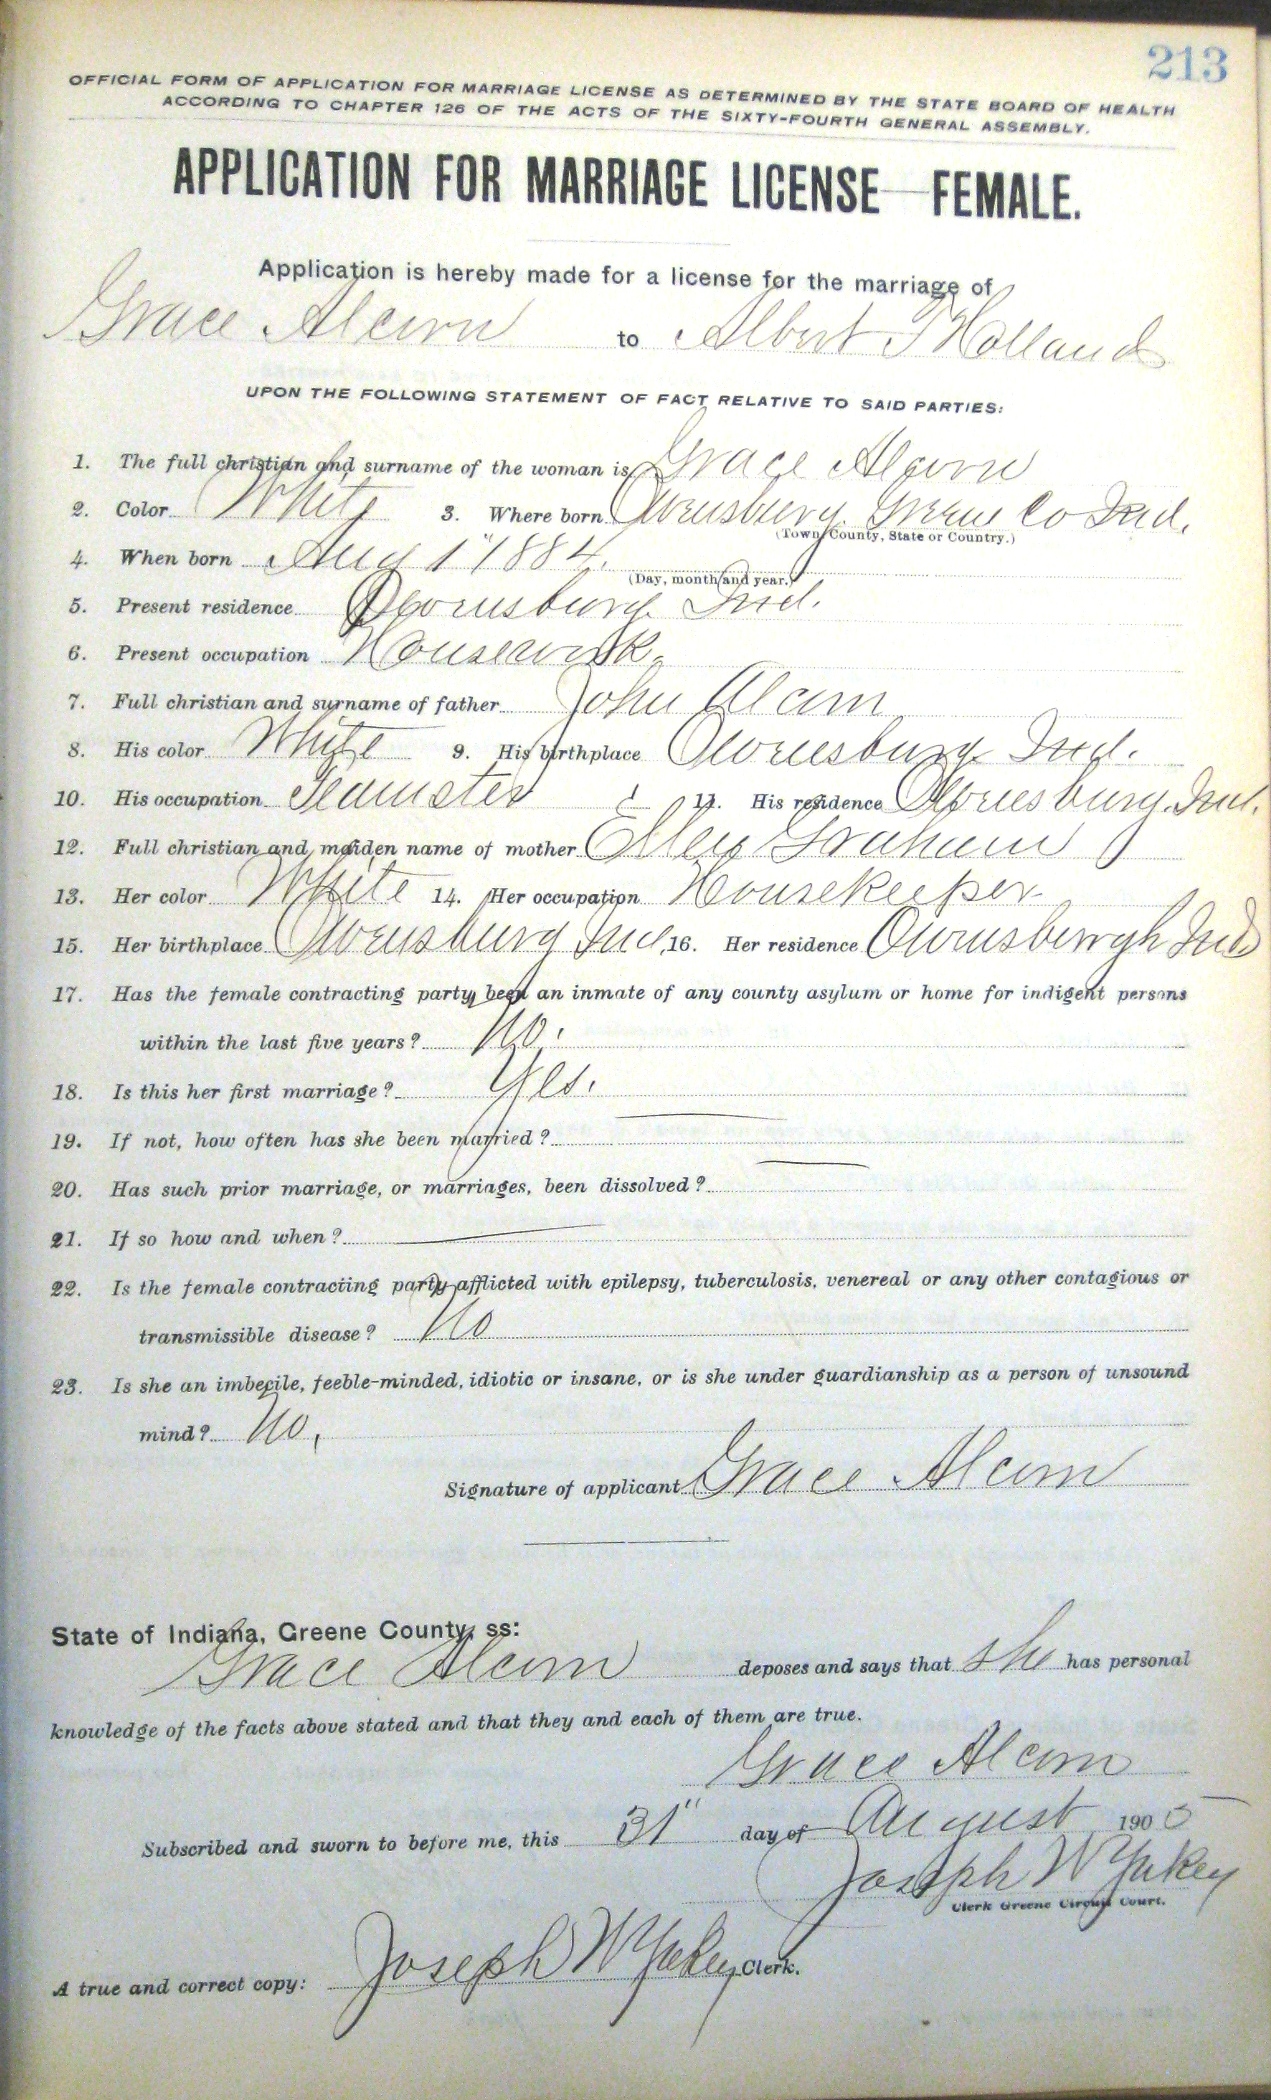 213
OFFICIAL FORM OF APPLICATION FOR MARRIAGE LICENSE AS DETERMINED BY THE STATE BOARD OF HEALTH
ACCORDING TO CHAPTER 126 OF THE ACTS OF THE SIXTY-FOURTH GENERAL ASSEMBLY.
APPLICATION FOR MARRIAGE LICENSE—FEMALE.
Application is hereby made for a license for the marriage of
Grace Alcorn to Albert T Holland
UPON THE FOLLOWING STATEMENT OF FACT RELATIVE TO SAID PARTIES:
1. The full christian and surname of the woman is Grace Alcorn
2. Color White 3. Where born Owensburg Greene Co Ind.
(Town, County, State or Country.)
4. When born Aug 1" 1884.
(Day, month and year.)
5. Present residence Owensburg Ind.
6. Present occupation Housework.
7. Full christian and surname of father John Alcorn
8. His color White 9. His birthplace Owensburg Ind.
10. His occupation Teamster 11. His residence Owensburg. Ind.
12. Full christian and maiden name of mother Ellen Graham
13. Her color White 14. Her occupation Housekeeper
15. Her birthplace Owensburg Ind, 16. Her residence Owensbergh Ind
17. Has the female contracting party been an inmate of any county asylum or home for indigent persons
within the last five years? No.
18. Is this her first marriage? Yes.
19. If not, how often has she been married?
20. Has such prior marriage, or marriages, been dissolved?
21. If so how and when?
22. Is the female contracting party afflicted with epilepsy, tuberculosis, venereal or any other contagious or
transmissible disease? No
23. Is she an imbecile, feeble-minded, idiotic or insane, or is she under guardianship as a person of unsound
mind? No,
Signature of applicant Grace Alcorn
State of Indiana, Greene County, ss:
Grace Alcorn deposes and says that she has personal
knowledge of the facts above stated and that they and each of them are true.
Grace Alcorn
Subscribed and sworn to before me, this 31" day of August 1905
Joseph W Yakey
Clerk Greene Circuit Court.
A true and correct copy: Joseph W Yakey Clerk.